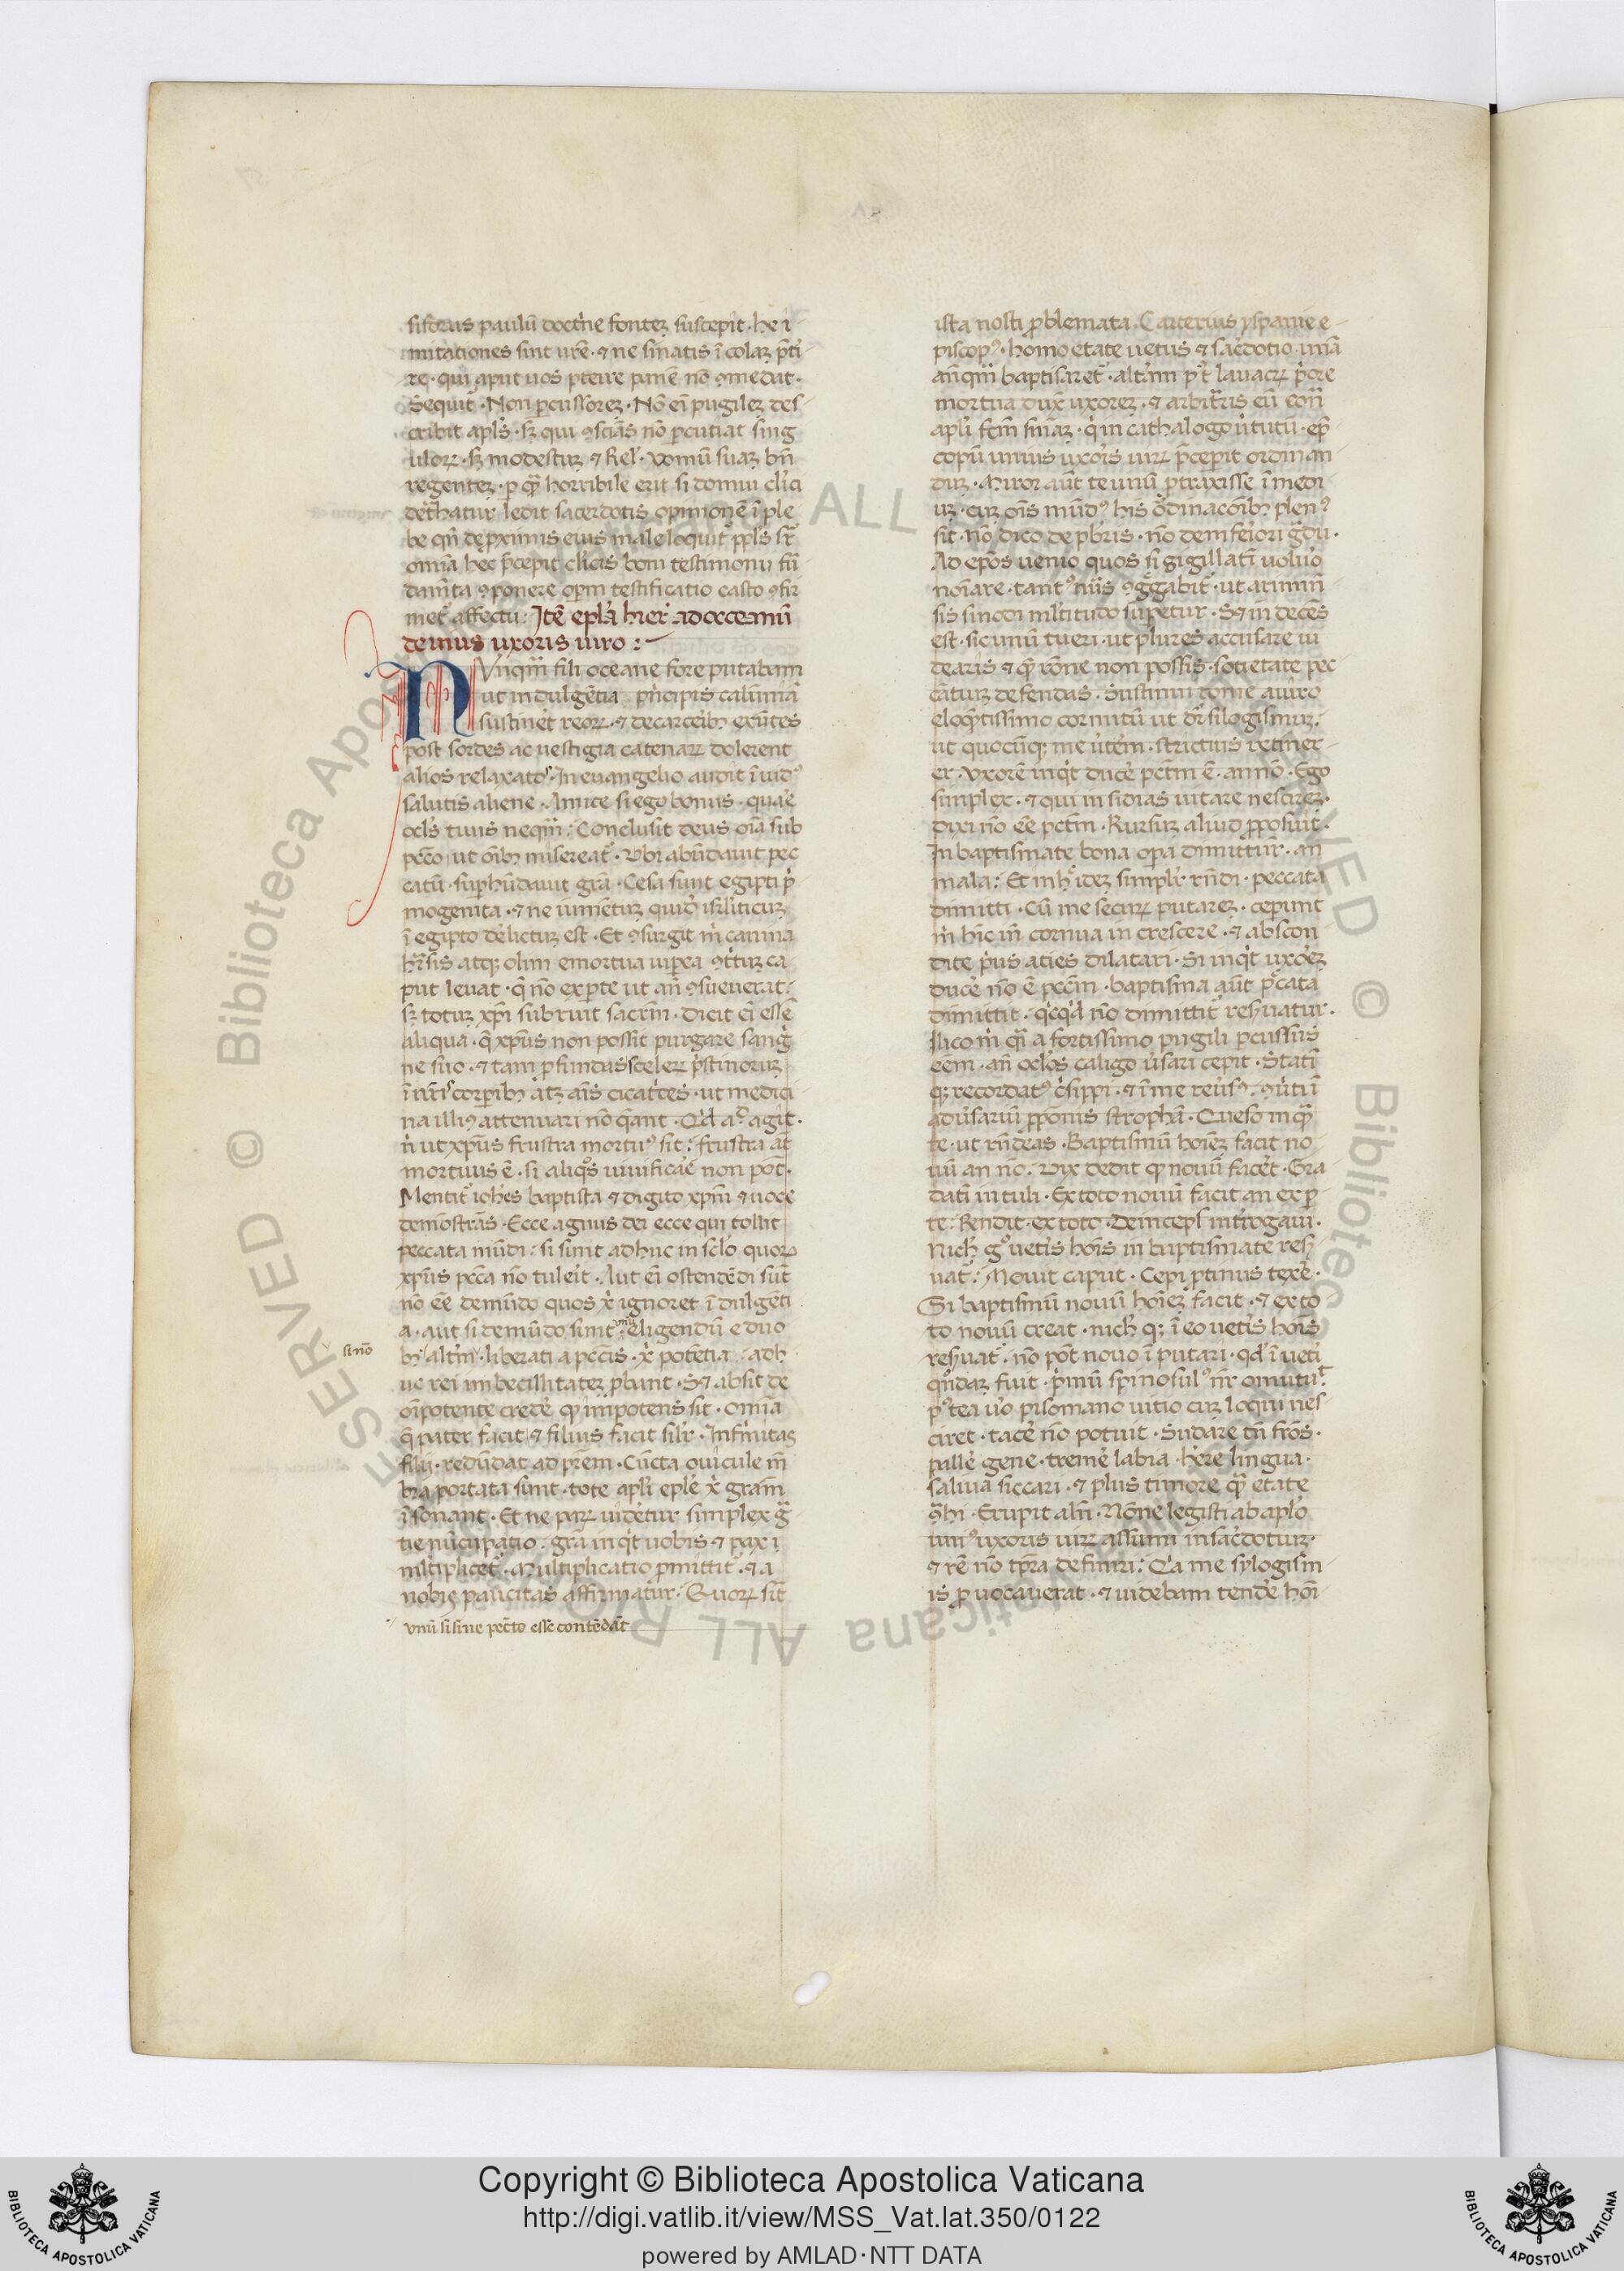 sifforus paulū doct'ne fontez suscepit · he i
mitationes sint vr̄e · ⁊ ne sinatis ī colaz p̄ti
re · qui aput vos pteire panē nō ꝯmedat ·
Sequit̄ · Non pcussorez · Nō eī pugilez des
cribit apl's · sz qui ꝯsciās nō pcutiat sing
uloꝝ · sz modestuz ⁊ rel' · Domū suaz bn̄
regentez · p q̄ horribile erit si domui cl'ici
det̄hatur ledit sacerdotis opinionē ī ple
be qn̄ de pximis eius male loquit̄ ppl's sr̄
omīa hec p̄cepit cl'icis boni testimonii fū
dam̄ta ꝯponere opm testificatio casto ꝯfir
met̄ affectu : Itē epl'a hier' ad occeanū
de unius uxoris viro :
NUnqm̄ fili oceane fore putabam
ut indulgētia p'ncipis calūniā
sustinet reoꝝ · ⁊ de carceribȝ exūtes
post sordes ac uestigia catenaꝝ dolerent
alios relaxatos · In euangelio audit īuidꝰ
salutis aliene · Amice si ego bonus · quare
ocl's tuus neqm̄ : Conclusit deus oīa sub
pcc̄o ut oībȝ misereat̄ · Ubi abūdauit pec
catū · suphūdauit grā · Cesa sunt egipti p'
mogenita · ⁊ ne iumētuz quid' isrl'iticuz
ī egipto delictuz est · Et ꝯsurgit m̄ canina
hr̄sis atqȝ olim emortua uipea ꝯt'tuz ca
put leuat · q̄ nō ex pte ut an̄ ꝯsueuerat :
sz totuz xp̄i subruit sacrm̄ · Dicit eī esse
aliqua · q̄ xpūs non possit purgare sang'
ne suo · ⁊ tam pfundas sceleꝝ p'stinorum
ī nr̄i corpibȝ atz aīs cicat'ces · ut medici
na illiꝰ attenuari nō q̄ant · Q'd aᵈ agit ·
n' ut xpūs frustra mortuꝰ sit : frustra at̄
mortuus ē · si aliqºs uiuificare non pōt ·
Mentit̄ iohēs baptista ⁊ digito xpm̄ ⁊ uoce
demōstrās · Ecce agnus dei ecce qui tollit
peccata mūdi : si sunt adhuc in scl'o quoꝝ
xpūs pcc̄a nō tulerit · Aut eī ostendēdi sūt
nō eē de mūdo quos x' ignoret īdulgēti
a · aut si de mūdo sunt · eligendū e duo
bȝ alt'm · liberati a pcc̄is · x' potētia adh
uc rei imbecillitatez pbant · Sȝ absit de
oīpotente credere qꝫ impotens sit · omīa
q̄ pater facit ⁊ filius facit sil'r · Infirmitas
filij · redūdat ad prēm · Cūcta ouicule mē
bra portata sunt · tote apl'i eple x' gratiam
īsonant · Et ne parꝫ uidetur simplex gr̄
tie nūcupatio · grā inq't uobis ⁊ pax ī
ml'tiplicet̄ · Multiplicatio pmittit̄ · ⁊ a
nobis paucitas affirmatur : Quoꝝ sit
sinō
unū si sine pctō esse contēdāt
ista nosti pblemata · Carterius yspanie e
piscopꝰ · homo etate uetus ⁊ sac̄dotio unā
anqm̄ baptisaret̄ · alt'am pꝰt lauacꝝ p'ore
mortua duxit uxorez · ⁊ arbit'ris eū con̄
apl'i fecisse sn̄iaz · q' in cathalogo u'tutū · epī
copū unius uxoris uirꝫ p̄cepit ordinan
duz · Miror aūt te unū ptraxisse ī medi
uz · cuz oīs mūdꝰ his ordinacōībȝ plenꝰ
sit · nō dico de pbr̄is · nō de inferiori gradu ·
Ad epōs uenio quos si sigillatī voluo
noīare · tantꝰ nūs ꝯgregabit̄ · ut arimin̄
sis sinodi ml'titudo supetur · Sȝ indeces
est · sic unū tueri · ut plures accusare ui
dearis ⁊ q̄ rōne non possis · societate pec
cātuz defendas · Sustinui rome a uiro
eloq̄tissimo cornutū ut dr̄ silogismuz ·
ut quocūqȝ me utem · strictius retiner
er · Uxorē inq't ducere pctm̄ ē · an nō · Ego
simplex · ⁊ qui insidias uitare nescirez ·
dixi nō eē pctm̄ · Rursuz aliud pposuit ·
In baptismate bona opa dimittūtur · an
mala : Et in hºidez simpl'r rn̄di · peccata
dimitti · Cū me securꝫ putarez · ceperunt
m̄ hīc īn̄ cornua increscere · ⁊ abscon
dite p'us acies dilatari · Si inq't uxorez
ducere nō ē pccm̄ · baptisma aūt p̄cata
dimittit · q'cq'd nō dimittit̄ reseruatur ·
Ilico m̄ q̄ a fortissimo pugili pcussus
eēm · an̄ oclos caligo u'sari cepit · Statī
qȝ recordatꝰ c'sippi · ⁊ ī me reuersꝰ ꝯu'ti ī
adu'sariū pponis strophā · Queso inq̄
te · ut rn̄deas · Baptismū hoīez facit no
uū an nō · Uix dedit qꝫ nouū faceret · Gra
datī intuli · Ex toto nouū facit an ex p
te : Rn̄dit · ex toto · Deinceps int'rogaui ·
Nich' gº uet'is hoīs in baptismate res
uat̄ : Mouit caput · Cepi ptinus texere ·
Si baptismū nouū hoīez facit · ⁊ ex to
to nouū creat · nich' qȝ ī eo uet'is hoīs
reseruat̄ · nō pōt nouo īputari · qd' ī uet'i
qºndaz fuit · p'mū spinosulꝰ nr̄ omutuit
pꝰtea uº pisomano uitio cuz loqui nes
ciret · tacere nō potuit · Sudare tn̄ frōs ·
pallere gene · tremere labia · herere lingua ·
saliua siccari · ⁊ plus timore q̄ etate
ꝯt'hi · Erupit aliqn̄ · Nōne legisti ab apl'o
uniꝰ uxoris uirꝫ assumi in sac̄dotiuz ·
⁊ rē nō tp̄ra definiri : Q'a me sylogism
is puocauerat · ⁊ uidebam tendere hoī
Copyright © Biblioteca Apostolica Vaticana
http://digi.vatlib.it/view/MSS_Vat.lat.350/0122
powered by AMLAD·NTT DATA